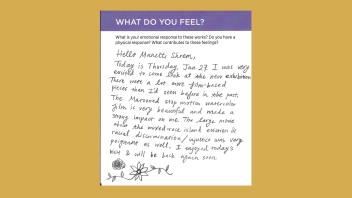 WHAT DO YOU FEEL?
What is your emotional response to these works? Do you have a
physical response? What contributes to these feelings?
Hello Manetti Shrem,
Today is Thursday, Jan 27 I was very
excited to come look at the new exhibition
There were a lot more film-based
pieces than I'd seen before in the past.
The Marooned stop motion watercolor
film is very beautiful and made a
strong impact on me. The large movie
about the mixed race island eviction &
racial discrimination/injustice was very
poignant as well. I enjoyed today's
visit & will be back again soon.